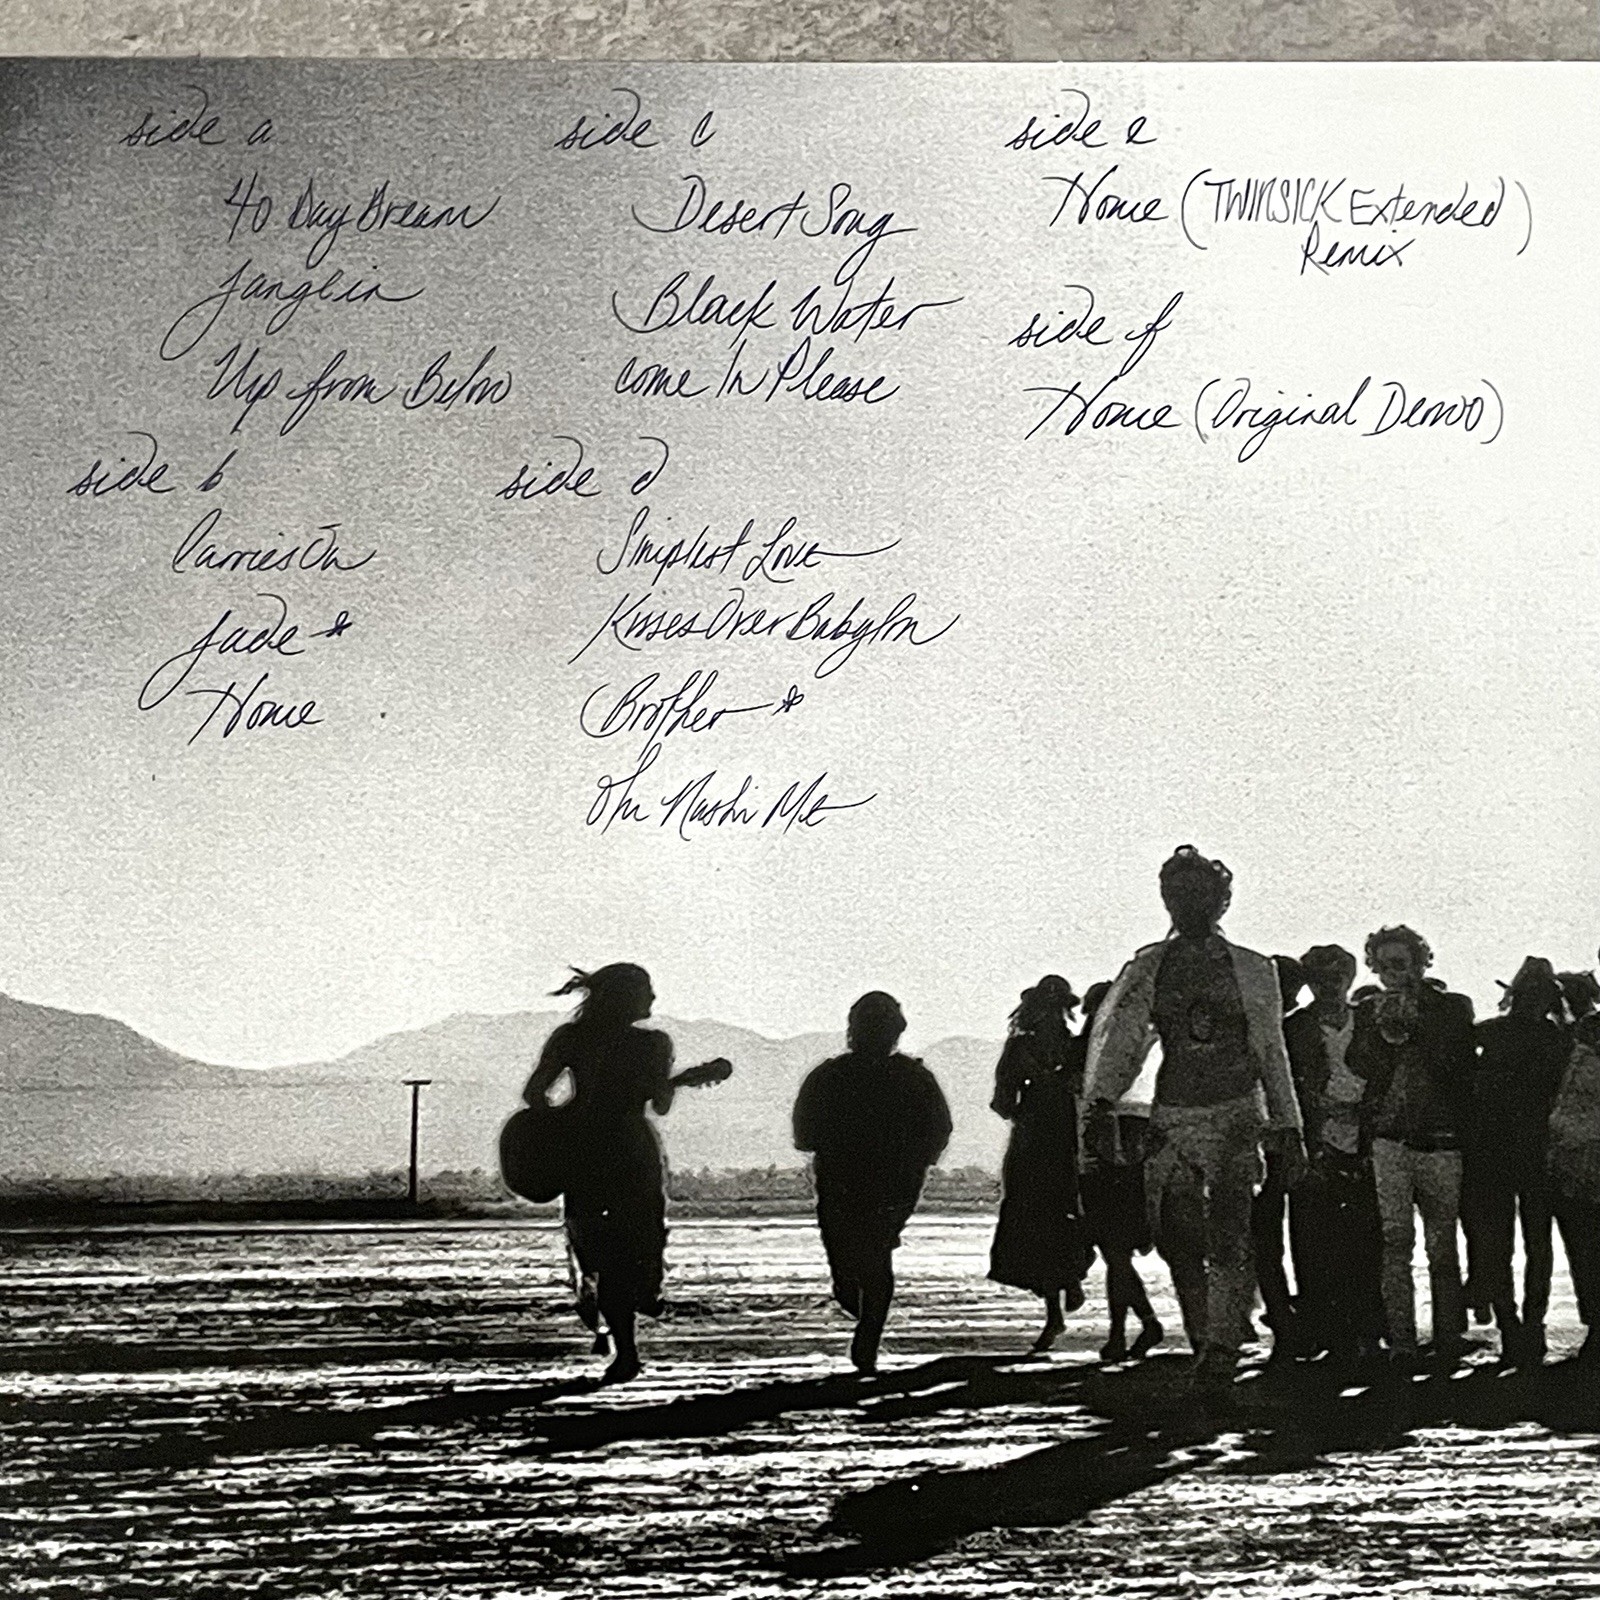 side a
40 Day Dream
Janglin
Up from Below
side b
Carries On
Jade *
Home
side c
Desert Song
Black Water
Come In Please
side d
Simplest Love
Kisses Over Babylon
Brother *
Om Nashi Me
side e
Home (TWINSICK Extended
Remix)
side f
Home (Original Demo)